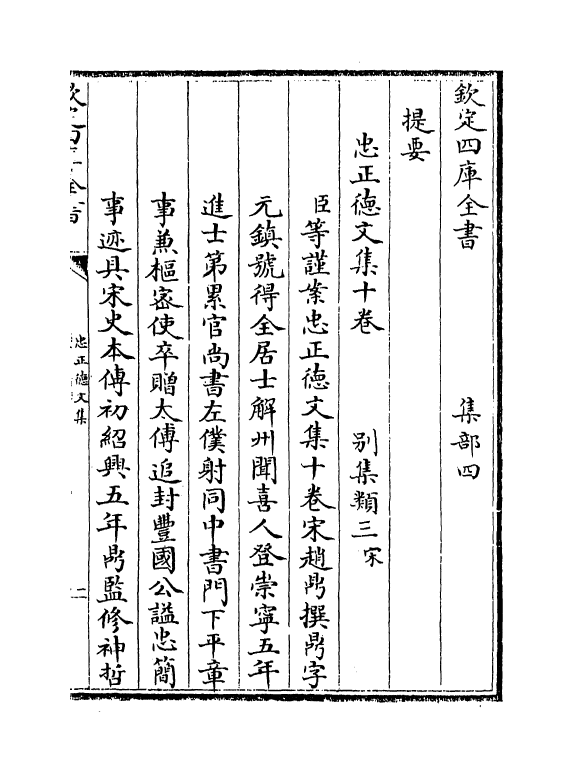 欽定四庫全書　集部四
提要
忠正德文集十卷　别集類三宋
臣等謹案忠正德文集十卷宋趙鼎撰鼎字
元鎮號得全居士解州聞喜人登崇寧五年
進士第累官尚書左僕射同中書門下平章
事兼樞密使卒贈太傅追封豐國公諡忠簡
事迹具宋史本傳初紹興五年鼎監修神哲
忠正德文集